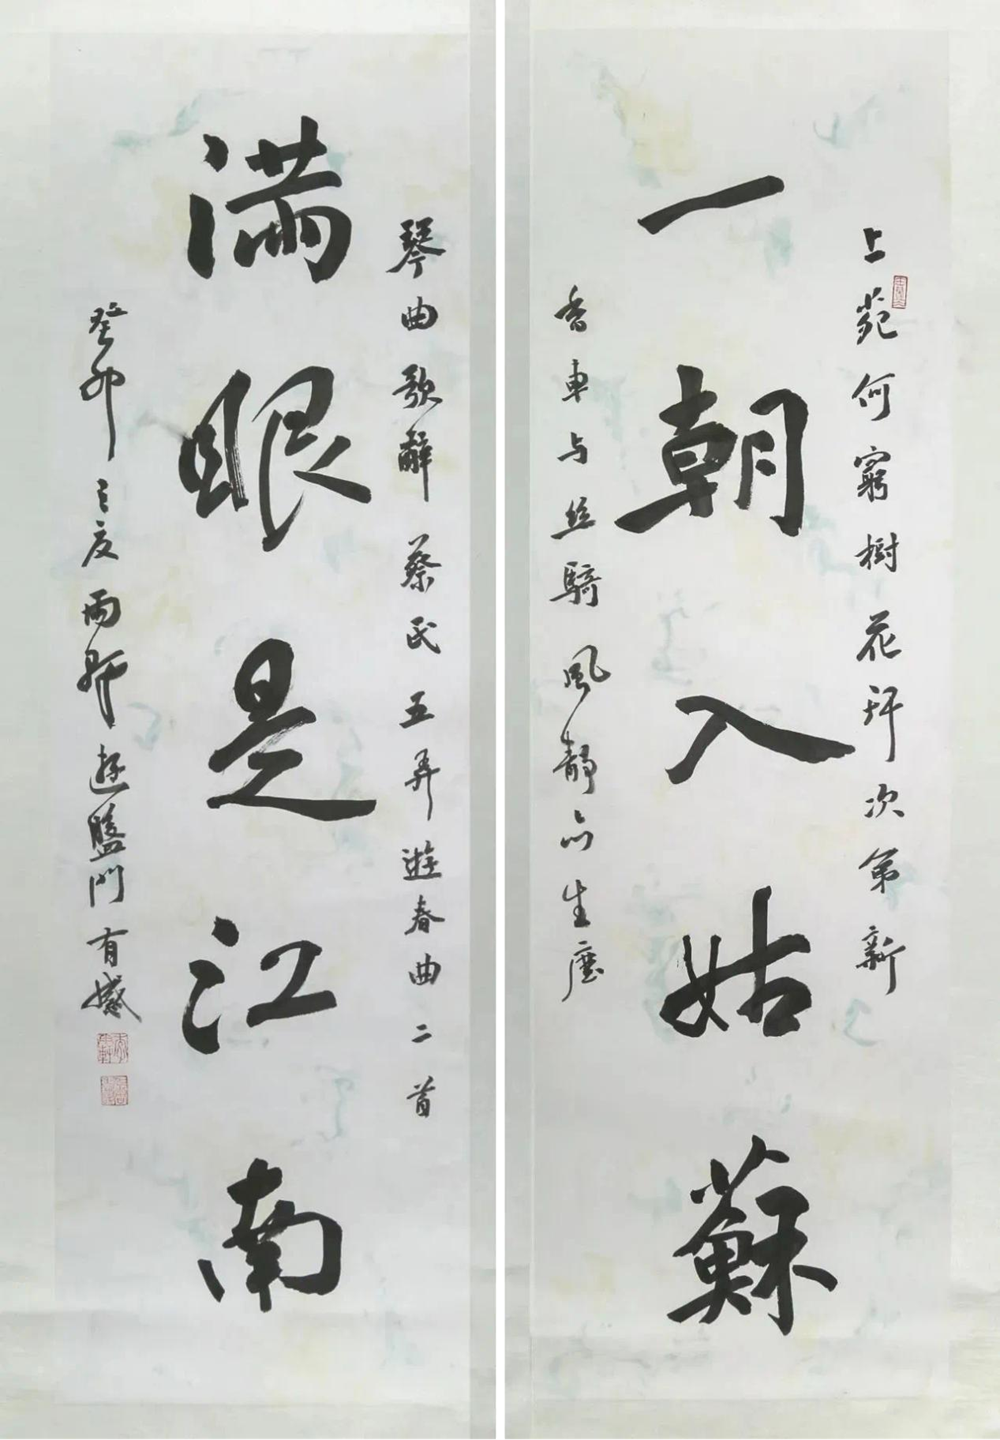 上苑何窮樹花開次第新
一朝入姑蘇
香車与絲騎風靜亦生塵
琴曲歌辭蔡氏五弄遊春曲二首
滿眼是江南
癸卯之夏雨軒遊盤門有感